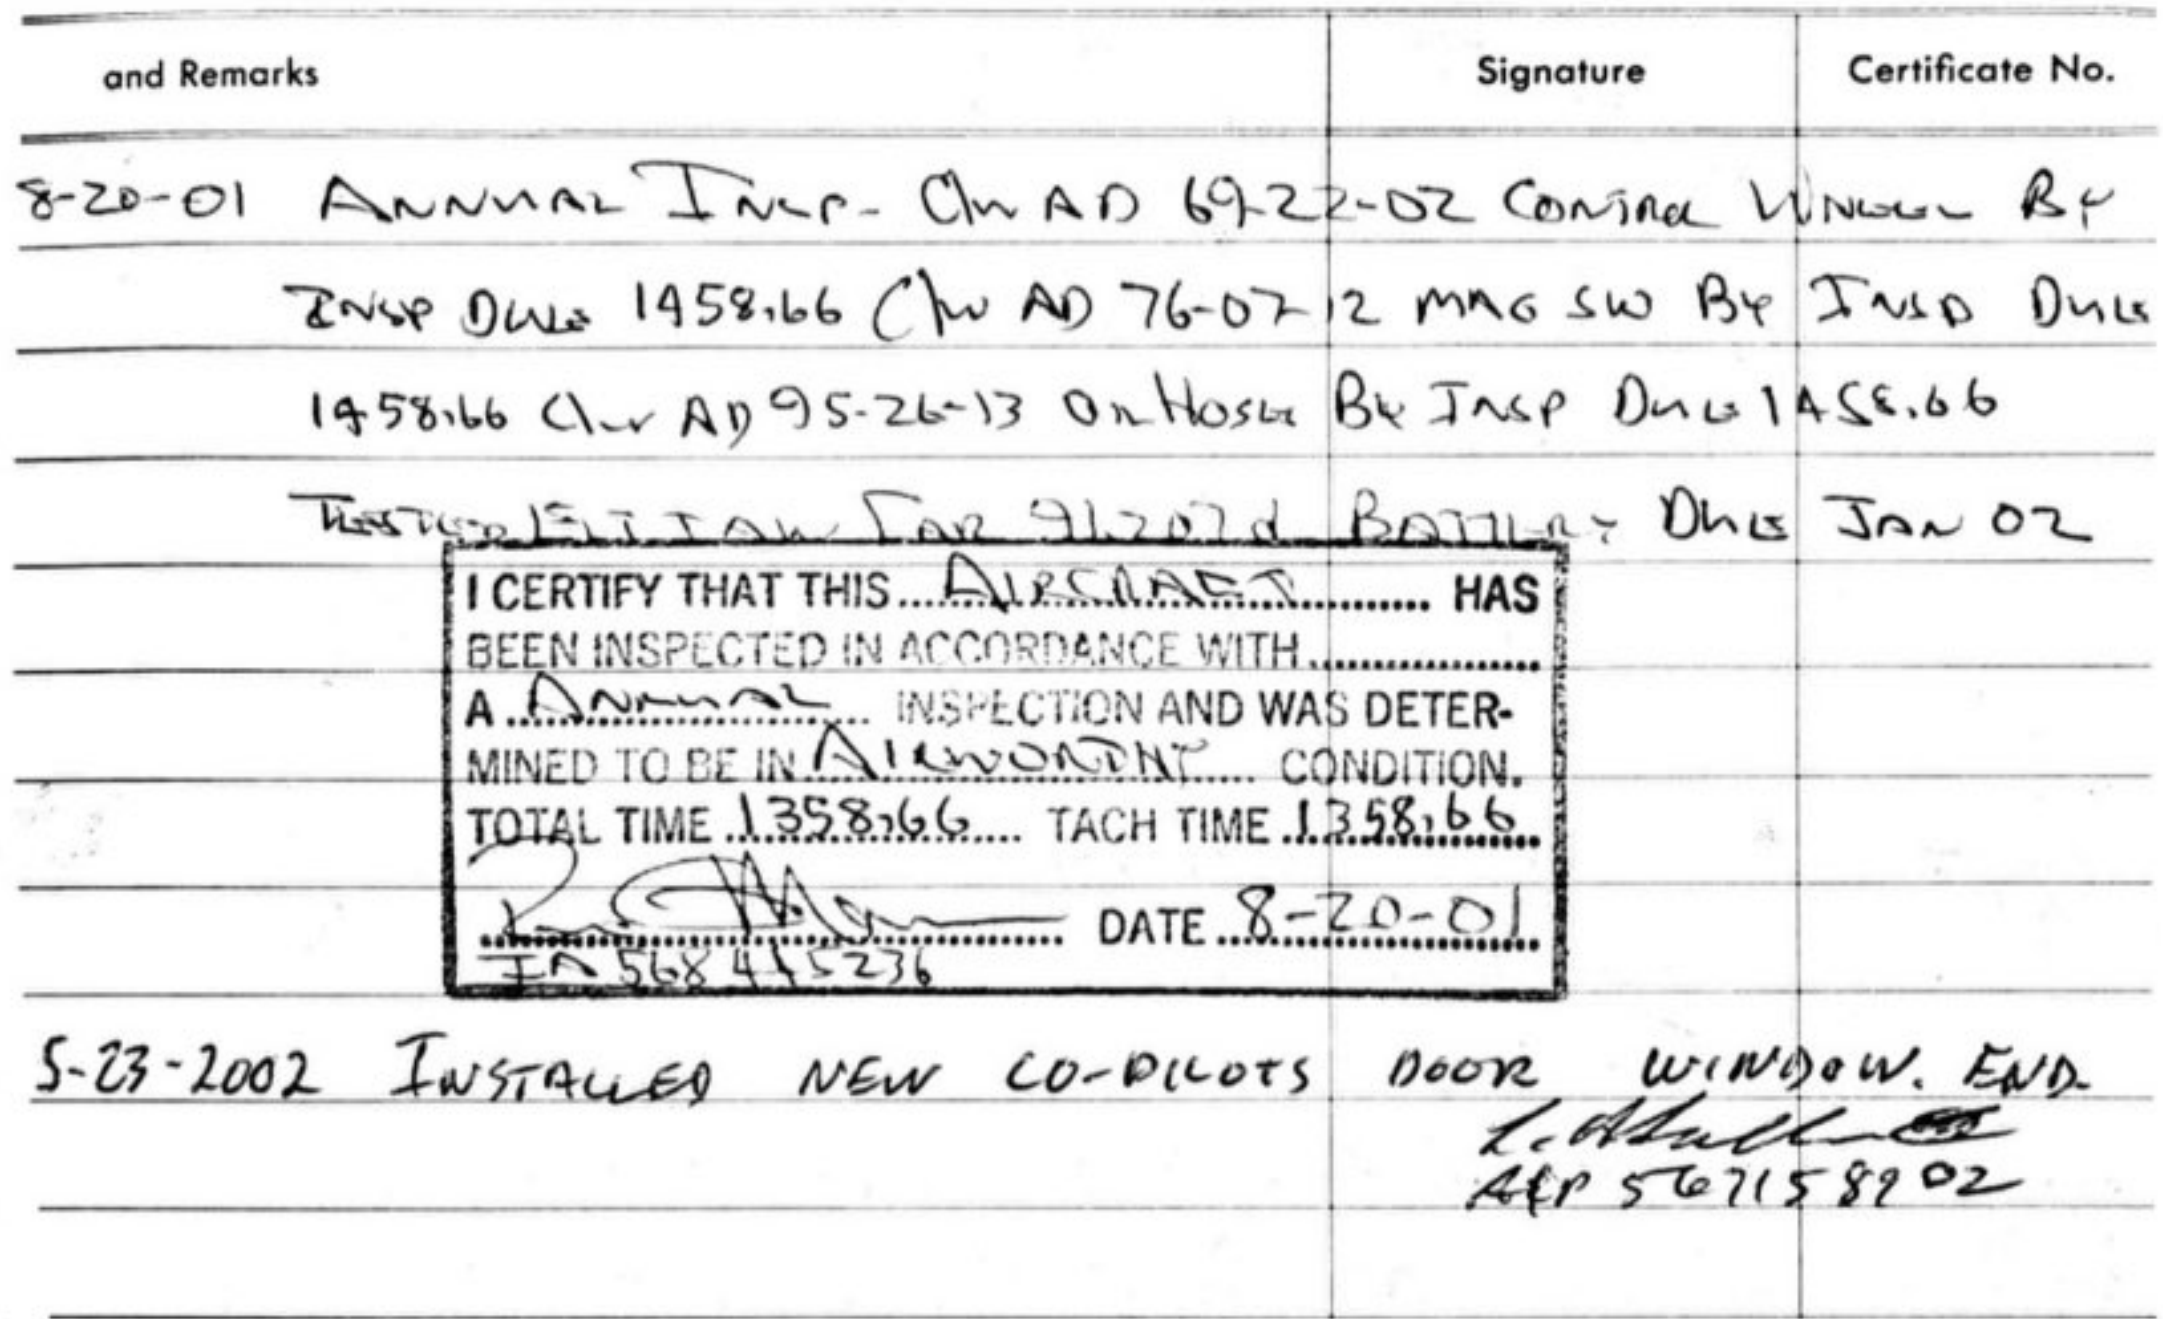 and Remarks Signature Certificate No.
8-20-01 ANNUAL INSP- C/W AD 69-22-02 CONTROL WHEEL BY
INSP DUE 1458.66 C/W AD 76-07-12 MAG SW BY INSP DUE
1458.66 C/W AD 95-26-13 OIL HOSE BY INSP DUE 1458.66
TESTED ELT IAW FAR 91.207d BATTERY DUE JAN 02
I CERTIFY THAT THIS AIRCRAFT HAS
BEEN INSPECTED IN ACCORDANCE WITH
A ANNUAL INSPECTION AND WAS DETER-
MINED TO BE IN AIRWORTHY CONDITION.
TOTAL TIME 1358.66 TACH TIME 1358.66
DATE 8-20-01
IA 568415236
5-23-2002 INSTALLED NEW CO-PILOTS DOOR WINDOW. END.
A&P 567158902